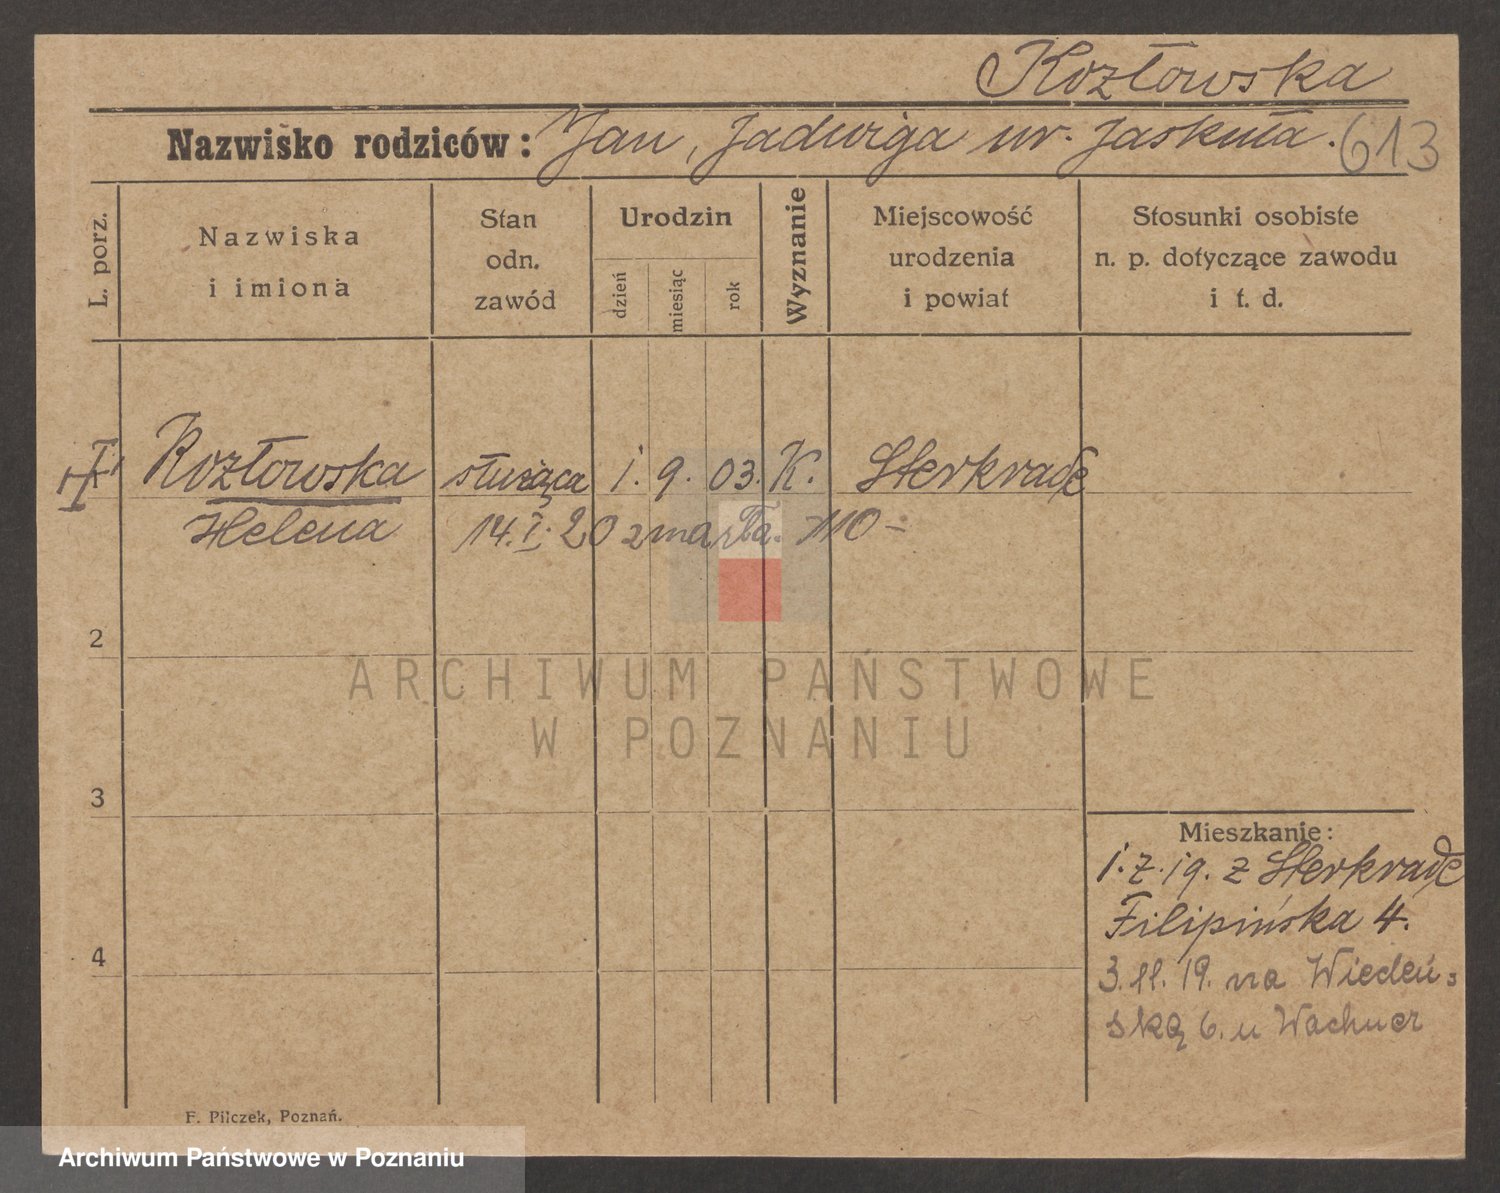 Kozłowska
Nazwisko rodziców: Jan, Jadwiga ur. Jaskuła. 613
L. porz.
Nazwiska i imiona
Stan odn. zawód
Urodzin
dzień
miesiąc
rok
Wyznanie
Miejscowość urodzenia i powiat
Stosunki osobiste n. p. dotyczące zawodu i t. d.
Kozłowska służąca 1. 9. 03. K. Sterkrade
Helena 14. I. 20 zmarła. 110 –
2
ARCHIWUM PAŃSTWOWE
W POZNANIU
3
Mieszkanie:
1. 7. 19. z Sterkrade
Filipińska 4.
4
3. 11. 19. na Wiedeń-
ską 6. u Wachner
F. Pilczek, Poznań.
Archiwum Państwowe w Poznaniu